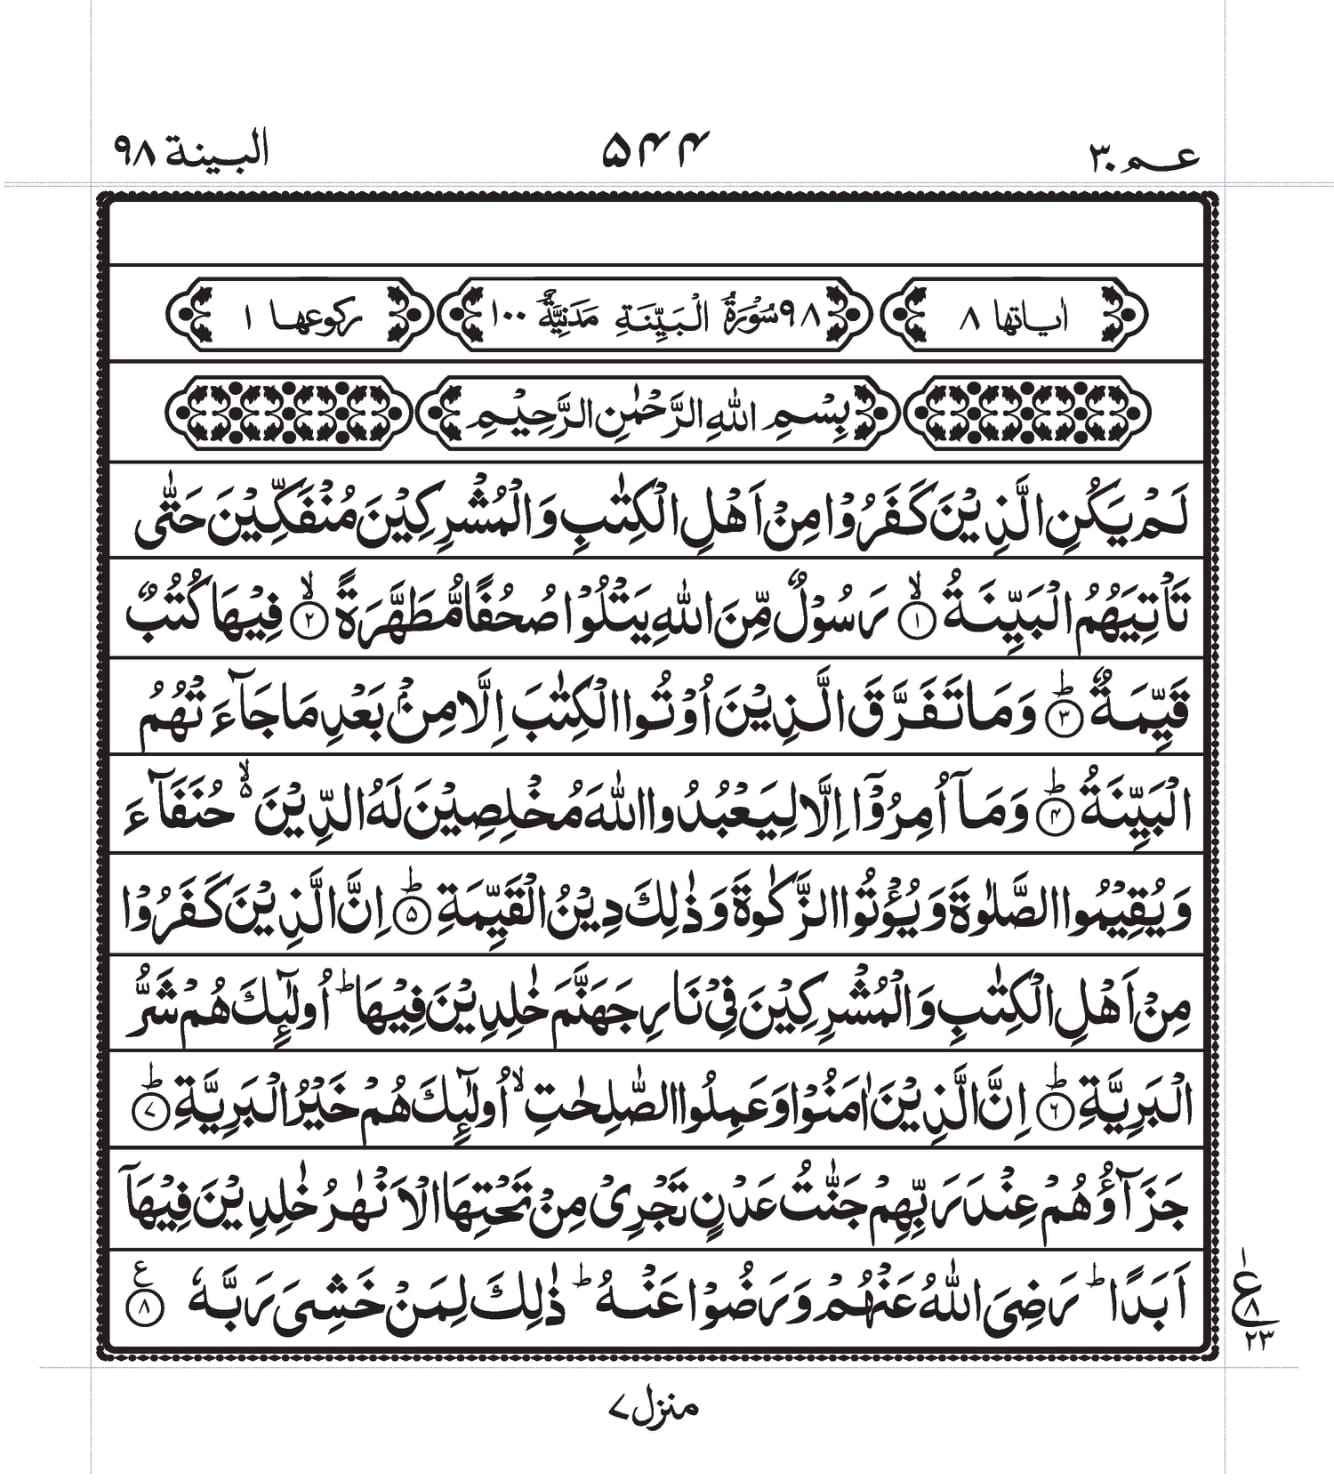 عـم ٣٠
۵۴۴
البينة ٩٨
اٰياتها ٨
٩٨ سُوْرَةُ الْبَيِّنَةِ مَدَنِيَّةٌ ١٠٠
ركوعها ١
بِسْمِ اللّٰهِ الرَّحْمٰنِ الرَّحِيْمِ
لَمْ يَكُنِ الَّذِيْنَ كَفَرُوْا مِنْ اَهْلِ الْكِتٰبِ وَالْمُشْرِكِيْنَ مُنْفَكِّيْنَ حَتّٰى
تَاْتِيَهُمُ الْبَيِّنَةُ ۙ﴿۱﴾ رَسُوْلٌ مِّنَ اللّٰهِ يَتْلُوْا صُحُفًا مُّطَهَّرَةً ۙ﴿۲﴾ فِيْهَا كُتُبٌ
قَيِّمَةٌ ؕ﴿۳﴾ وَمَا تَفَرَّقَ الَّذِيْنَ اُوْتُوا الْكِتٰبَ اِلَّا مِنْۢ بَعْدِ مَا جَآءَتْهُمُ
الْبَيِّنَةُ ؕ﴿۴﴾ وَمَآ اُمِرُوْٓا اِلَّا لِيَعْبُدُوا اللّٰهَ مُخْلِصِيْنَ لَهُ الدِّيْنَ ۙ۬ حُنَفَآءَ
وَيُقِيْمُوا الصَّلٰوةَ وَيُؤْتُوا الزَّكٰوةَ وَذٰلِكَ دِيْنُ الْقَيِّمَةِ ؕ﴿۵﴾ اِنَّ الَّذِيْنَ كَفَرُوْا
مِنْ اَهْلِ الْكِتٰبِ وَالْمُشْرِكِيْنَ فِيْ نَارِ جَهَنَّمَ خٰلِدِيْنَ فِيْهَا ؕ اُولٰٓئِكَ هُمْ شَرُّ
الْبَرِيَّةِ ؕ﴿۶﴾ اِنَّ الَّذِيْنَ اٰمَنُوْا وَعَمِلُوا الصّٰلِحٰتِ ۙ اُولٰٓئِكَ هُمْ خَيْرُ الْبَرِيَّةِ ؕ﴿۷﴾
جَزَآؤُهُمْ عِنْدَ رَبِّهِمْ جَنّٰتُ عَدْنٍ تَجْرِيْ مِنْ تَحْتِهَا الْاَنْهٰرُ خٰلِدِيْنَ فِيْهَآ
اَبَدًا ؕ رَضِيَ اللّٰهُ عَنْهُمْ وَرَضُوْا عَنْهُ ؕ ذٰلِكَ لِمَنْ خَشِيَ رَبَّهٗ ﴿۸﴾ ع
١
ع
٨
٢٣
منزل ۷